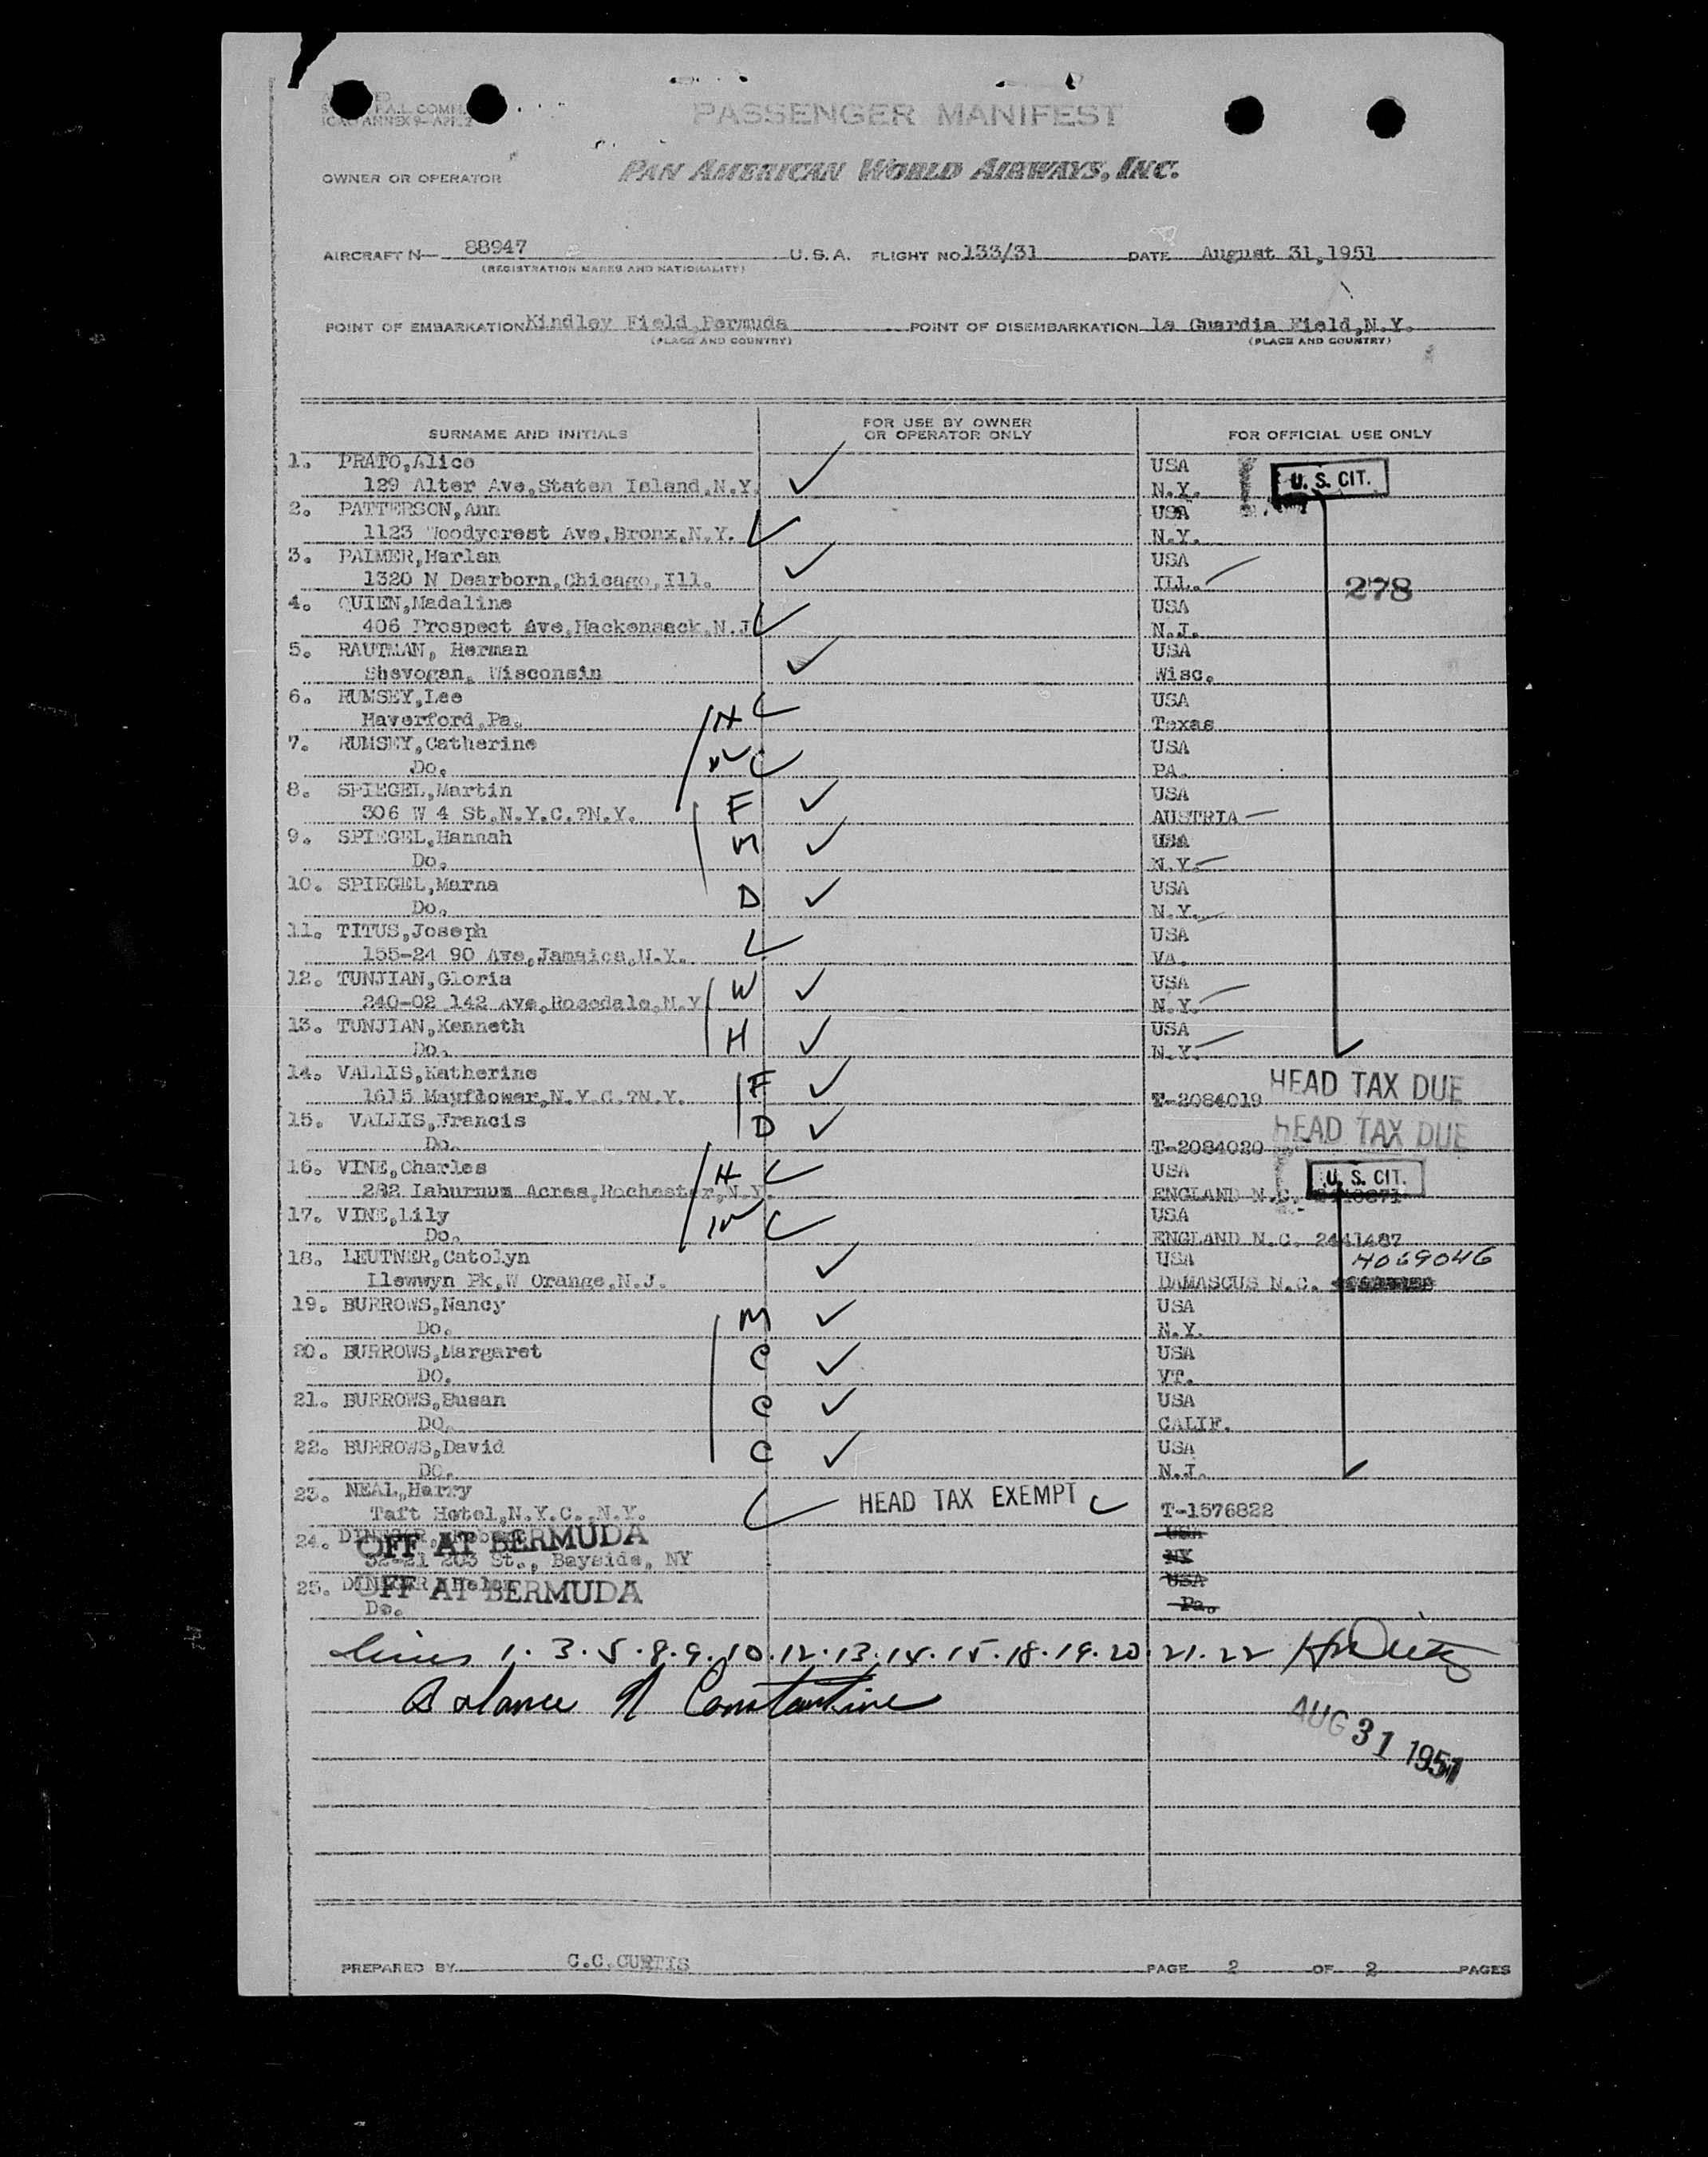 PASSENGER MANIFEST
OWNER OR OPERATOR PAN AMERICAN WORLD AIRWAYS, INC.
AIRCRAFT N— 88947 U.S.A. FLIGHT NO 133/31 DATE August 31,1951
(REGISTRATION MARKS AND NATIONALITY)
POINT OF EMBARKATION Kindley Field,Bermuda POINT OF DISEMBARKATION la Guardia Field,N.Y.
(PLACE AND COUNTRY) (PLACE AND COUNTRY)
SURNAME AND INITIALS FOR USE BY OWNER OR OPERATOR ONLY FOR OFFICIAL USE ONLY
1. PRATO,Alice USA U.S. CIT.
129 Alter Ave,Staten Island,N.Y. N.Y.
2. PATTERSON,Ann USA
1123 Woodycrest Ave,Bronx,N.Y. N.Y.
3. PALMER,Harlan USA
1320 N Dearborn,Chicago,Ill. ILL. 278
4. QUIEN,Madaline USA
406 Prospect Ave,Hackensack,N.J N.J.
5. RAUTMAN, Herman USA
Shevogan, Wisconsin Wisc.
6. RUMSEY,Lee USA
Haverford,Pa. H Texas
7. RUMSEY,Catherine USA
Do. W PA.
8. SPIEGEL,Martin USA
306 W 4 St.N.Y.C.?N.Y. F AUSTRIA
9. SPIEGEL,Hannah USA
Do. M N.Y.
10. SPIEGEL,Marna USA
Do. D N.Y.
11. TITUS,Joseph USA
155-24 90 Ave,Jamaica,N.Y. VA.
12. TUNJIAN,Gloria W USA
240-02 142 Ave,Rosedale,N.Y. N.Y.
13. TUNJIAN,Kenneth H USA
Do. N.Y.
14. VALLIS,Katherine F HEAD TAX DUE
1615 Mayflower,N.Y.C.?N.Y. T-2084019
15. VALLIS,Francis D HEAD TAX DUE
Do. T-2084020
16. VINE,Charles H USA U.S. CIT.
282 Laburnum Acres,Rochester,N.Y. ENGLAND N.C.
17. VINE,Lily W USA
Do. ENGLAND N.C. 2441487
18. LEUTNER,Catolyn USA 4069046
Llewwyn Pk,W Orange,N.J. DAMASCUS N.C.
19. BURROWS,Nancy USA
Do. M N.Y.
20. BURROWS,Margaret USA
DO. C VT.
21. BURROWS,Susan USA
DO. C CALIF.
22. BURROWS,David USA
DO. C N.J.
23. NEAL,Harry HEAD TAX EXEMPT
Taft Hotel,N.Y.C.,N.Y. T-1576822
24. OFF AT BERMUDA USA
32-21 203 St., Bayside, NY NY
25. OFF AT BERMUDA USA
Do. Pa.
lines 1.3.5.8.9.10.12.13.14.15.18.19.20.21.22
Balance Constantine
AUG 31 1951
PREPARED BY C.C.CURTIS PAGE 2 OF 2 PAGES